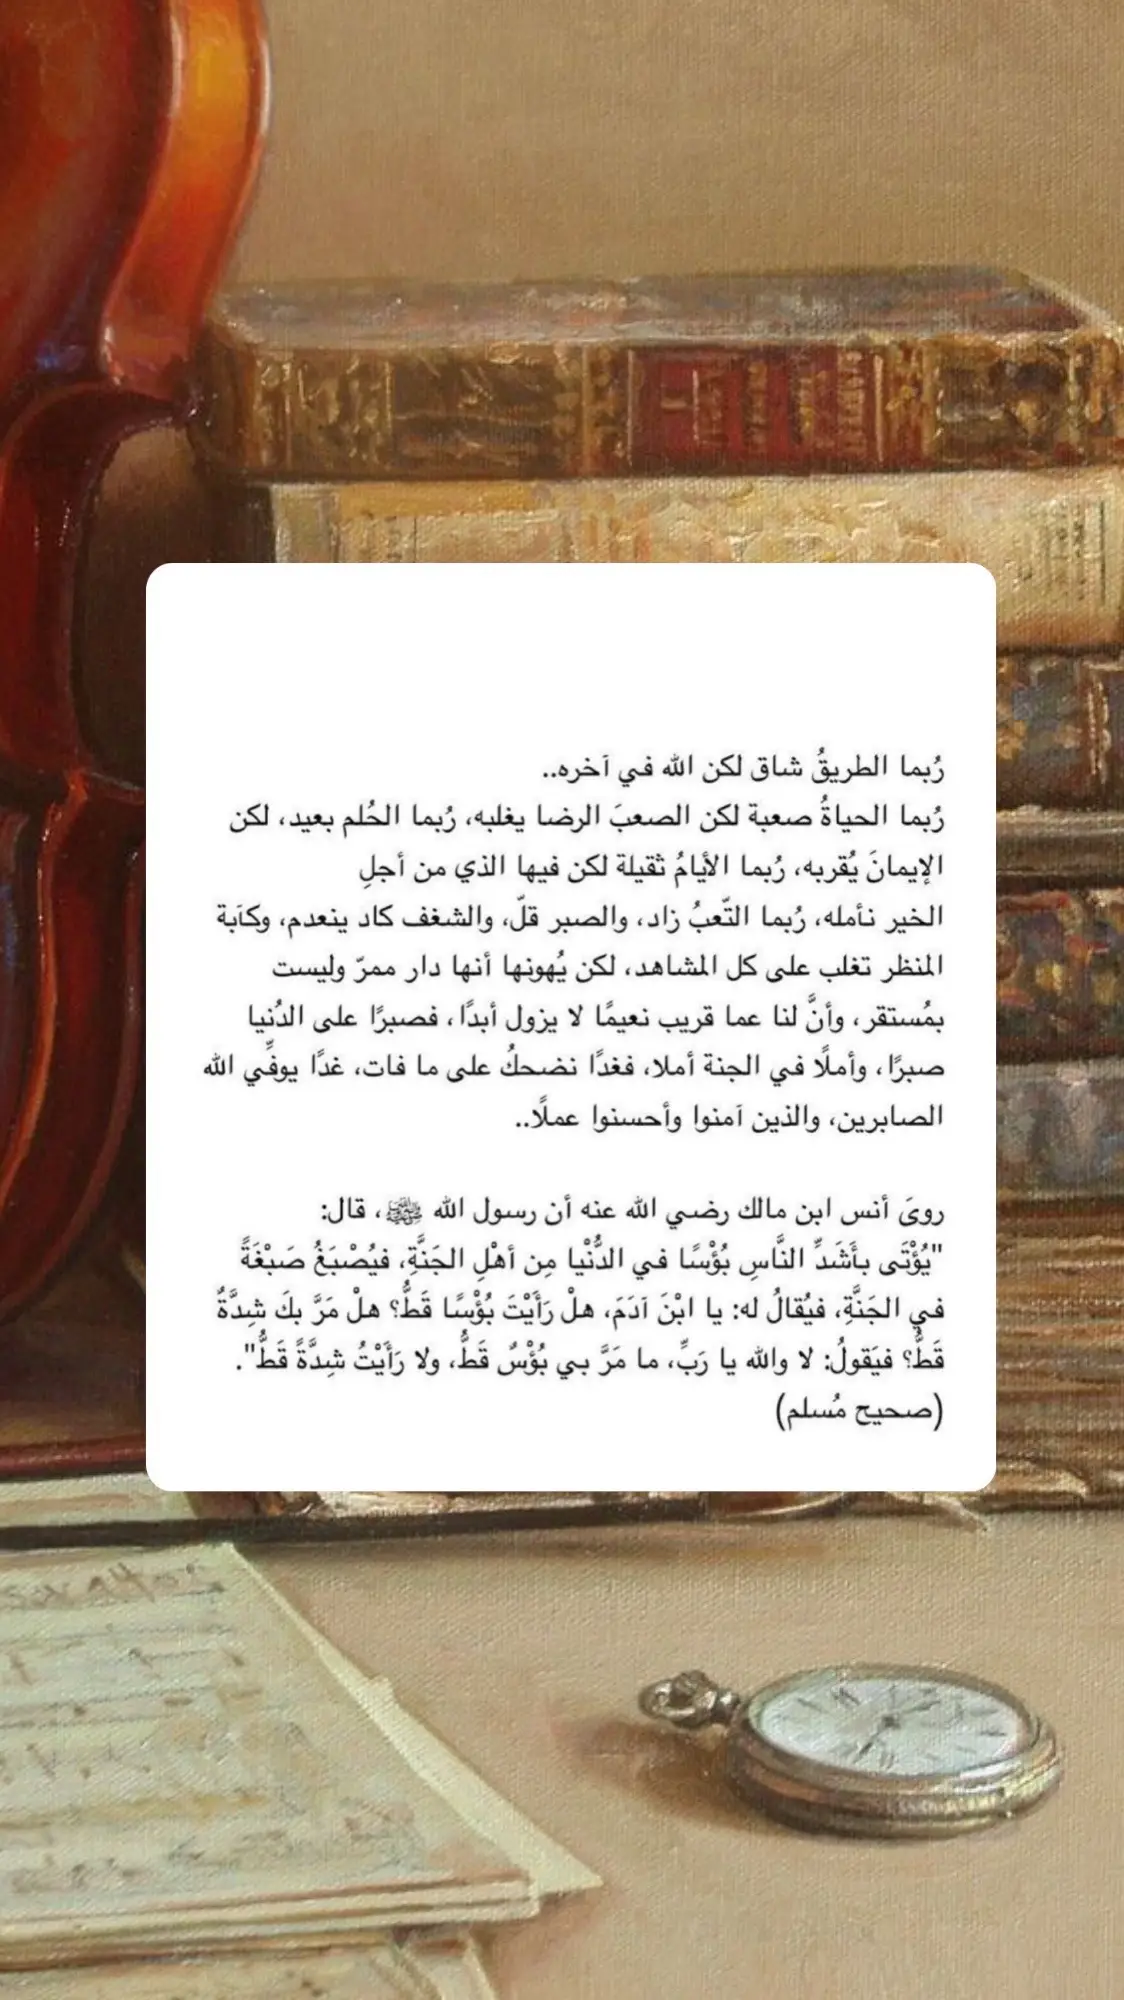 رُبما الطريقُ شاق لكن الله في آخره..
رُبما الحياةُ صعبة لكن الصعبَ الرضا يغلبه، رُبما الحُلم بعيد، لكن
الإيمانَ يُقربه، رُبما الأيامُ ثقيلة لكن فيها الذي من أجلِ
الخير نأمله، رُبما التّعبُ زاد، والصبر قلّ، والشغف كاد ينعدم، وكآبة
المنظر تغلب على كل المشاهد، لكن يُهونها أنها دار ممرّ وليست
بمُستقر، وأنَّ لنا عما قريب نعيمًا لا يزول أبدًا، فصبرًا على الدُنيا
صبرًا، وأملًا في الجنة أملا، فغدًا نضحكُ على ما فات، غدًا يوفِّي الله
الصابرين، والذين آمنوا وأحسنوا عملًا..
رویَ أنس ابن مالك رضي الله عنه أن رسول الله ﷺ، قال:
"يُؤْتَى بأَشَدِّ النَّاسِ بُؤْسًا في الدُّنْيا مِن أهْلِ الجَنَّةِ، فيُصْبَغُ صَبْغَةً
في الجَنَّةِ، فيُقالُ له: يا ابْنَ آدَمَ، هلْ رَأَيْتَ بُؤْسًا قَطُّ؟ هلْ مَرَّ بكَ شِدَّةٌ
قَطُّ؟ فيَقولُ: لا والله يا رَبِّ، ما مَرَّ بي بُؤْسٌ قَطُّ، ولا رَأَيْتُ شِدَّةً قَطُّ".
(صحيح مُسلم)